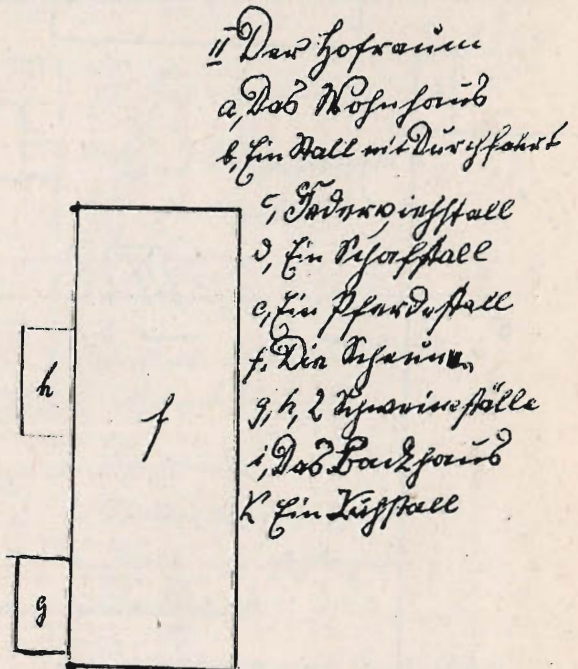 II Der Hofraum
a, Das Wohnhaus
b, Ein Stall mit Durchfahrt
c, Federviehstall
d, Ein Schafstall
e, Ein Pferdestall
f. Die Scheune
g, h, 2 Schweineställe
i, Das Backhaus
K Ein Kuhstall
h
f
g